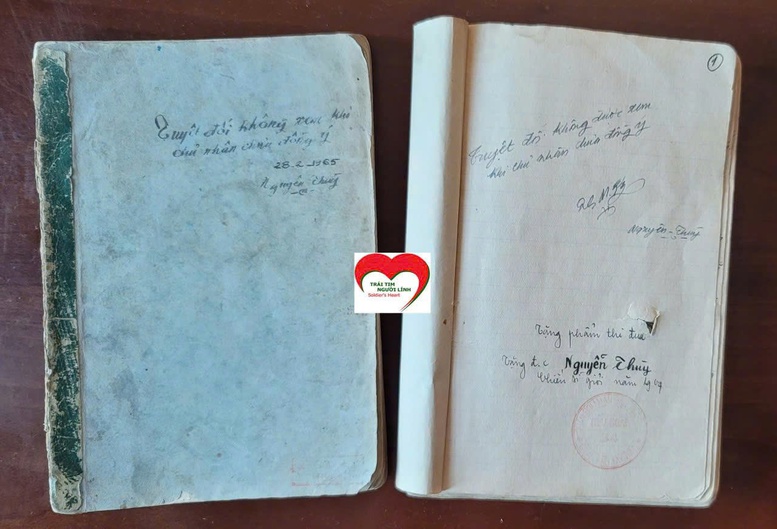 Tuyệt đối không xem khi
chủ nhân chưa đồng ý
28-2-1965
Nguyễn Thuỳ
TRÁI TIM
NGƯỜI LÍNH
Soldier's Heart
1
Tuyệt đối không được xem
khi chủ nhân chưa đồng ý
Nguyễn Thuỳ
Tặng phẩm thi đua
Tặng đ.c Nguyễn Thùy
Chiến sĩ giỏi năm